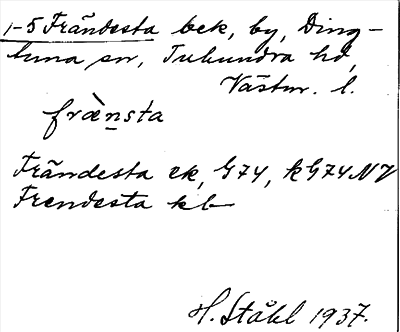 1-5 Frändesta bek, by, Ding-
tuna sn, Tuhundra hd,
Västm. l.
fræ̀nsta
Frändesta ek, G74, kG74NV
Frendesta kb
H. Ståhl 1937.